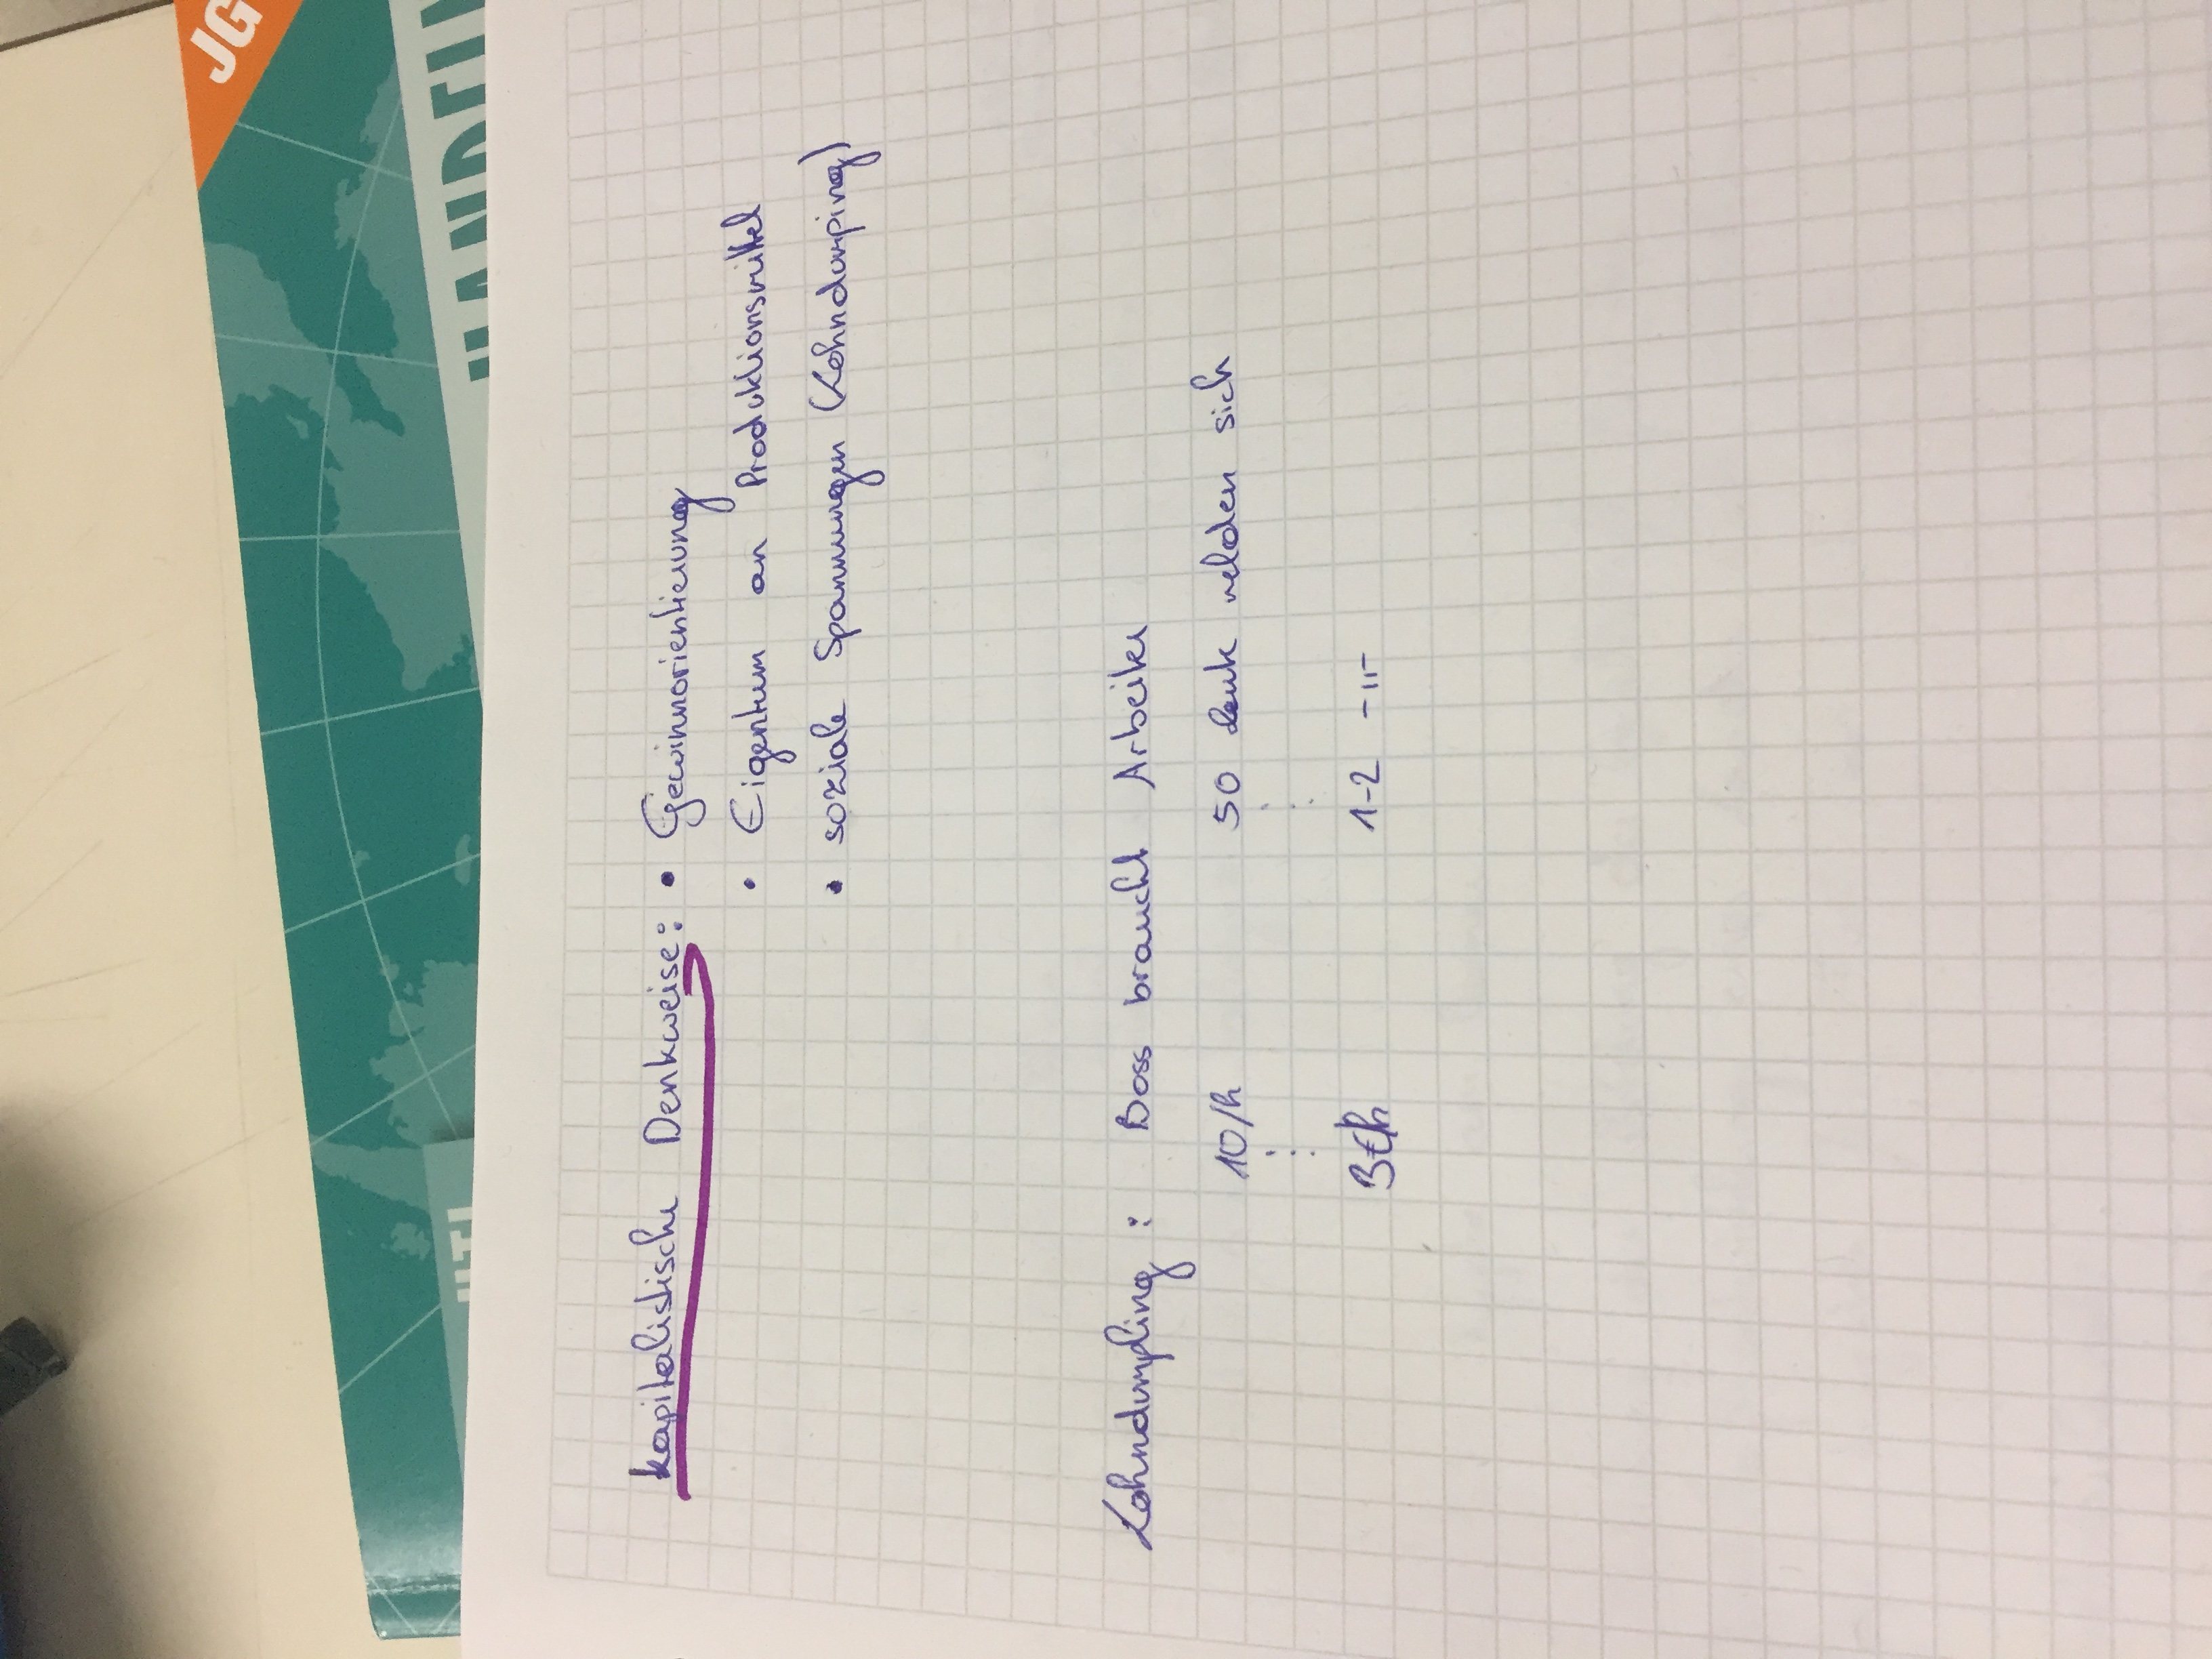 JG
HANDEL
kapitalistische Denkweise: • Gewinnorientierung
• Eigentum an Produktionsmittel
• soziale Spannungen (Lohndumping)
Lohndumpling : Boss braucht Arbeiter
10/h 50 Leute melden sich
⋮ ⋮
3€/h 1-2 -"-